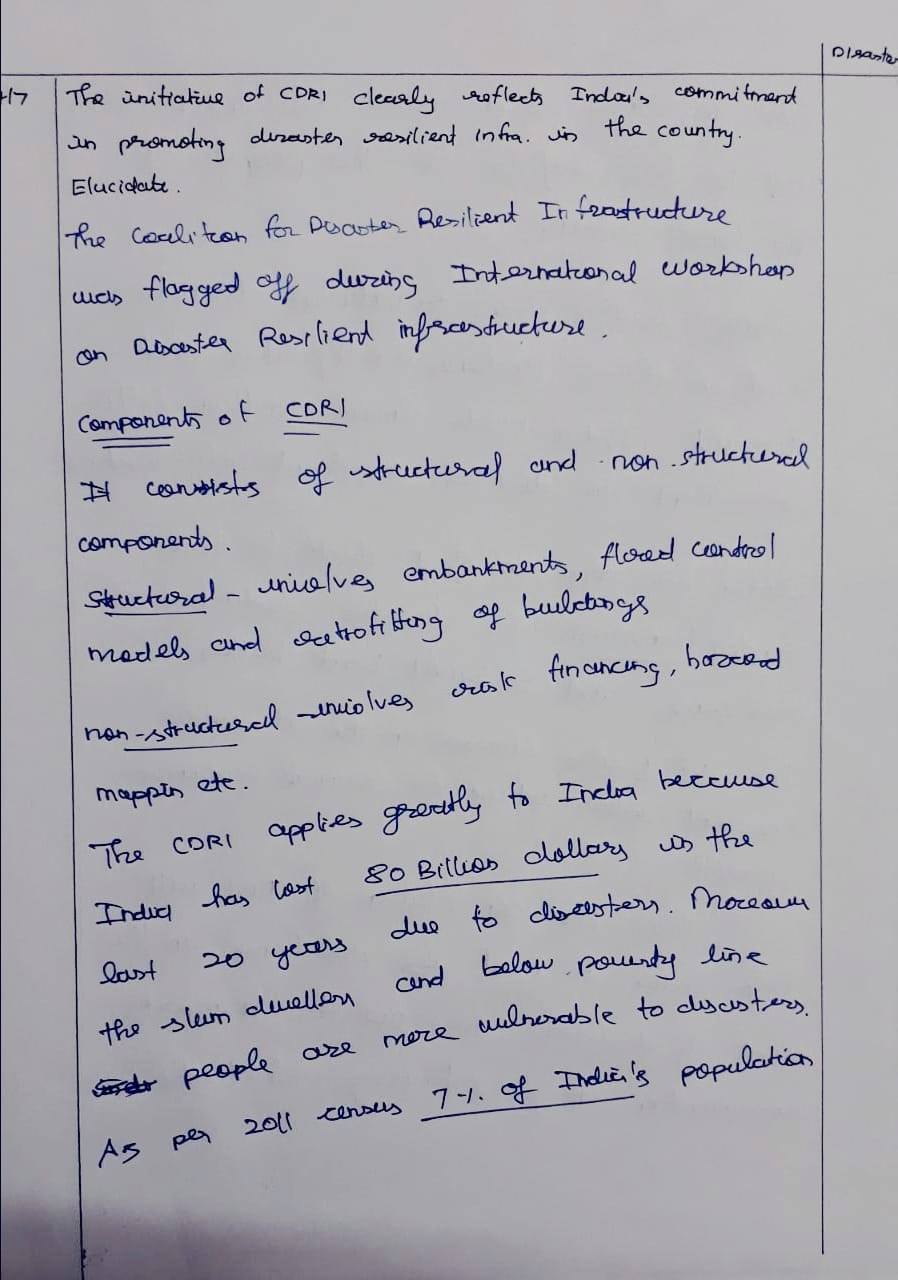 Disaster
17 The initiative of CDRI clearly reflects India's commitment
in promoting disaster resilient infra. in the country.
Elucidate.
The Coalition for Disaster Resilient Infrastructure
was flagged off during International workshop
on Disaster Resilient infrastructure.
Components of CDRI
It consists of structural and non-structural
components.
Structural - involves embankments, flood control
models and retrofitting of buildings
non-structural - involves risk financing, hazard
mappin etc.
The CDRI applies greatly to India because
India has lost 80 Billion dollars in the
last 20 years due to disasters. Moreover
the slum dwellers and below poverty line
people are more vulnerable to disasters.
As per 2011 census 7%. of India's population